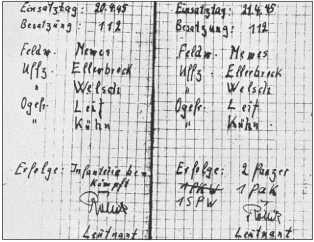 Einsatztag: 20.4.45
Besatzung: 112
Feldw. Nemes
Uffz. Ellerbrock
" Welsch
Ogefr. Leif
" Kühn
Erfolge: Infanterie be-
kämpft
Leutnant
Einsatztag: 21.4.45
Besatzung: 112
Feldw. Nemes
Uffz. Ellerbrock
" Welsch
Ogefr. Leif
" Kühn
Erfolge: 2 Panzer
1 PKW 1 Pak
1 SPW
Leutnant